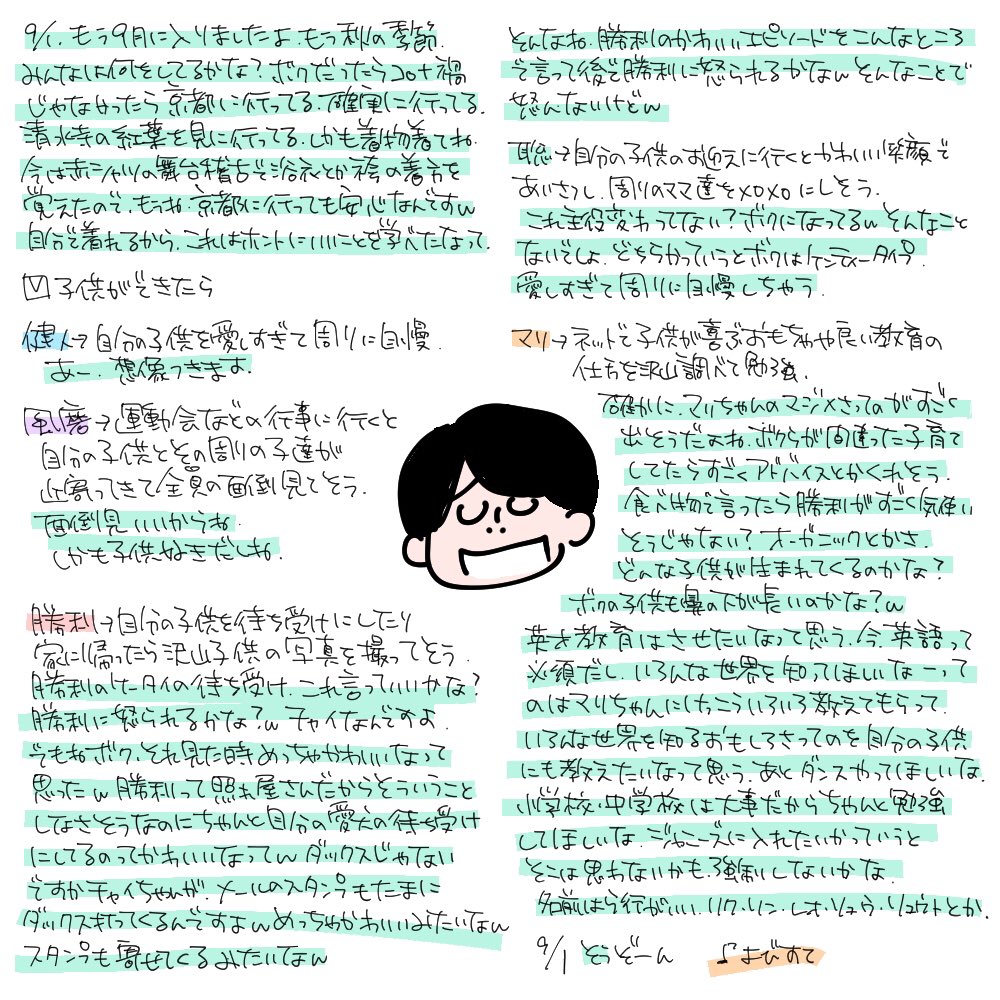 9/1. もう9月に入りましたよ.もう秋の季節.
みんなは何をしてるかな?ボクだったらコロナ禍
じゃなかったら京都に行ってる.確実に行ってる.
清水寺の紅葉を見に行ってる.しかも着物着てね.
今は赤シャツの舞台稽古で浴衣とか袴の着方を
覚えたので、もうね京都に行っても安心なんですw
自分で着れるから.これはホントにいいことを学べたなって.
子供ができたら
健人→自分の子供を愛しすぎて周りに自慢.
あー.想像つきます.
風磨→運動会などの行事に行くと
自分の子供とその周りの子達が
近寄ってきて全員の面倒見てそう.
面倒見いいからね.
しかも子供好きだしね.
勝利→自分の子供を待ち受けにしたり
家に帰ったら沢山子供の写真を撮ってそう.
勝利のケータイの待ち受け.これ言っていいかな?
勝利に怒られるかな?w チャイなんですよ.
でもねボク、それ見た時めっちゃかわいいなって
思ったw 勝利って照れ屋さんだからそういうこと
しなさそうなのにちゃんと自分の愛犬の待ち受け
にしてるのってかわいいなってw ダックスじゃない
ですかチャイちゃんが.メールのスタンプもたまに
ダックス打ってくるんですよw めっちゃかわいいみたいなw
スタンプも寄せてくるみたいなw
そんなね.勝利のかわいいエピソードをこんなところ
で言って後で勝利に怒られるかなw そんなことで
怒んないけどw
聡→自分の子供のお迎えに行くとかわいい笑顔で
あいさつし、周りのママ達をメロメロにしそう.
これ主役変わってない?ボクになってるw そんなこと
ないでしょ.どちらかっていうとボクはケンティータイプ.
愛しすぎて周りに自慢しちゃう.
マリ→ネットで子供が喜ぶおもちゃや良い教育の
仕方を沢山調べて勉強.
確かに.マリちゃんのマジメさってのがすごく
出そうだよね.ボクらが間違った子育て
してたらすごくアドバイスとかくれそう.
食べ物で言ったら勝利がすごく気使い
そうじゃない?オーガニックとかさ.
どんな子供が生まれてくるのかな?
ボクの子供も鼻の下が長いのかな?w
英才教育はさせたいなって思う.今、英語って
必須だし.いろんな世界を知ってほしいなーって
のはマリちゃんにけっこういろいろ教えてもらって.
いろんな世界を知るおもしろさってのを自分の子供
にも教えたいなって思う.あとダンスやってほしいな.
小学校・中学校は大事だからちゃんと勉強
してほしいな.ジャニーズに入れたいかっていうと
そこは思わないかも.強制しないかな.
名前はら行がいい.リク・リン・レオ・リュウ・リュウトとか.
9/1 そうぞーん ♪よびすて